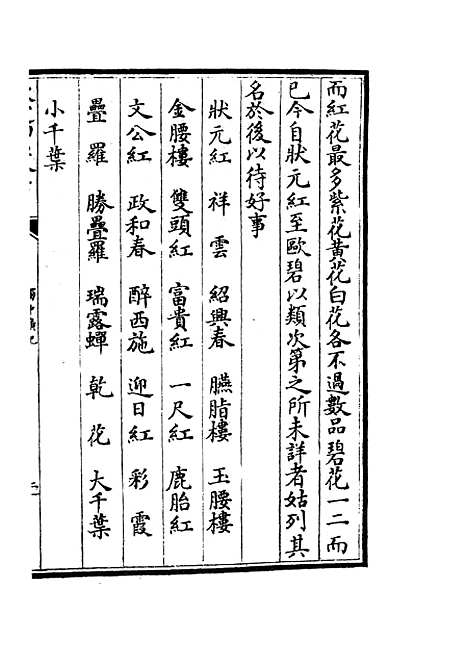 而紅花最多紫花黃花白花各不過數品碧花一二而
已今自狀元紅至歐碧以類次第之所未詳者姑列其
名於後以待好事
狀元紅 祥雲 紹興春 臙脂樓 玉腰樓
金腰樓 雙頭紅 富貴紅 一尺紅 鹿胎紅
文公紅 政和春 醉西施 迎日紅 彩霞
疊羅 勝疊羅 瑞露蟬 乾花 大千葉
小千葉